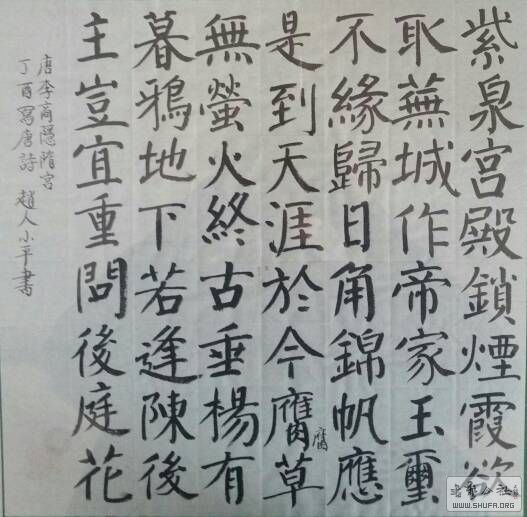 紫泉宫殿鎖煙霞欲
取蕪城作帝家玉璽
不緣歸日角錦帆應
是到天涯於今腐草
腐
無螢火終古垂楊有
暮鴉地下若逢陳後
主豈宜重問後庭花
唐李商隱隋宫
丁酉寫唐詩 趙人小平書
书法公社
WWW.SHUFA.ORG